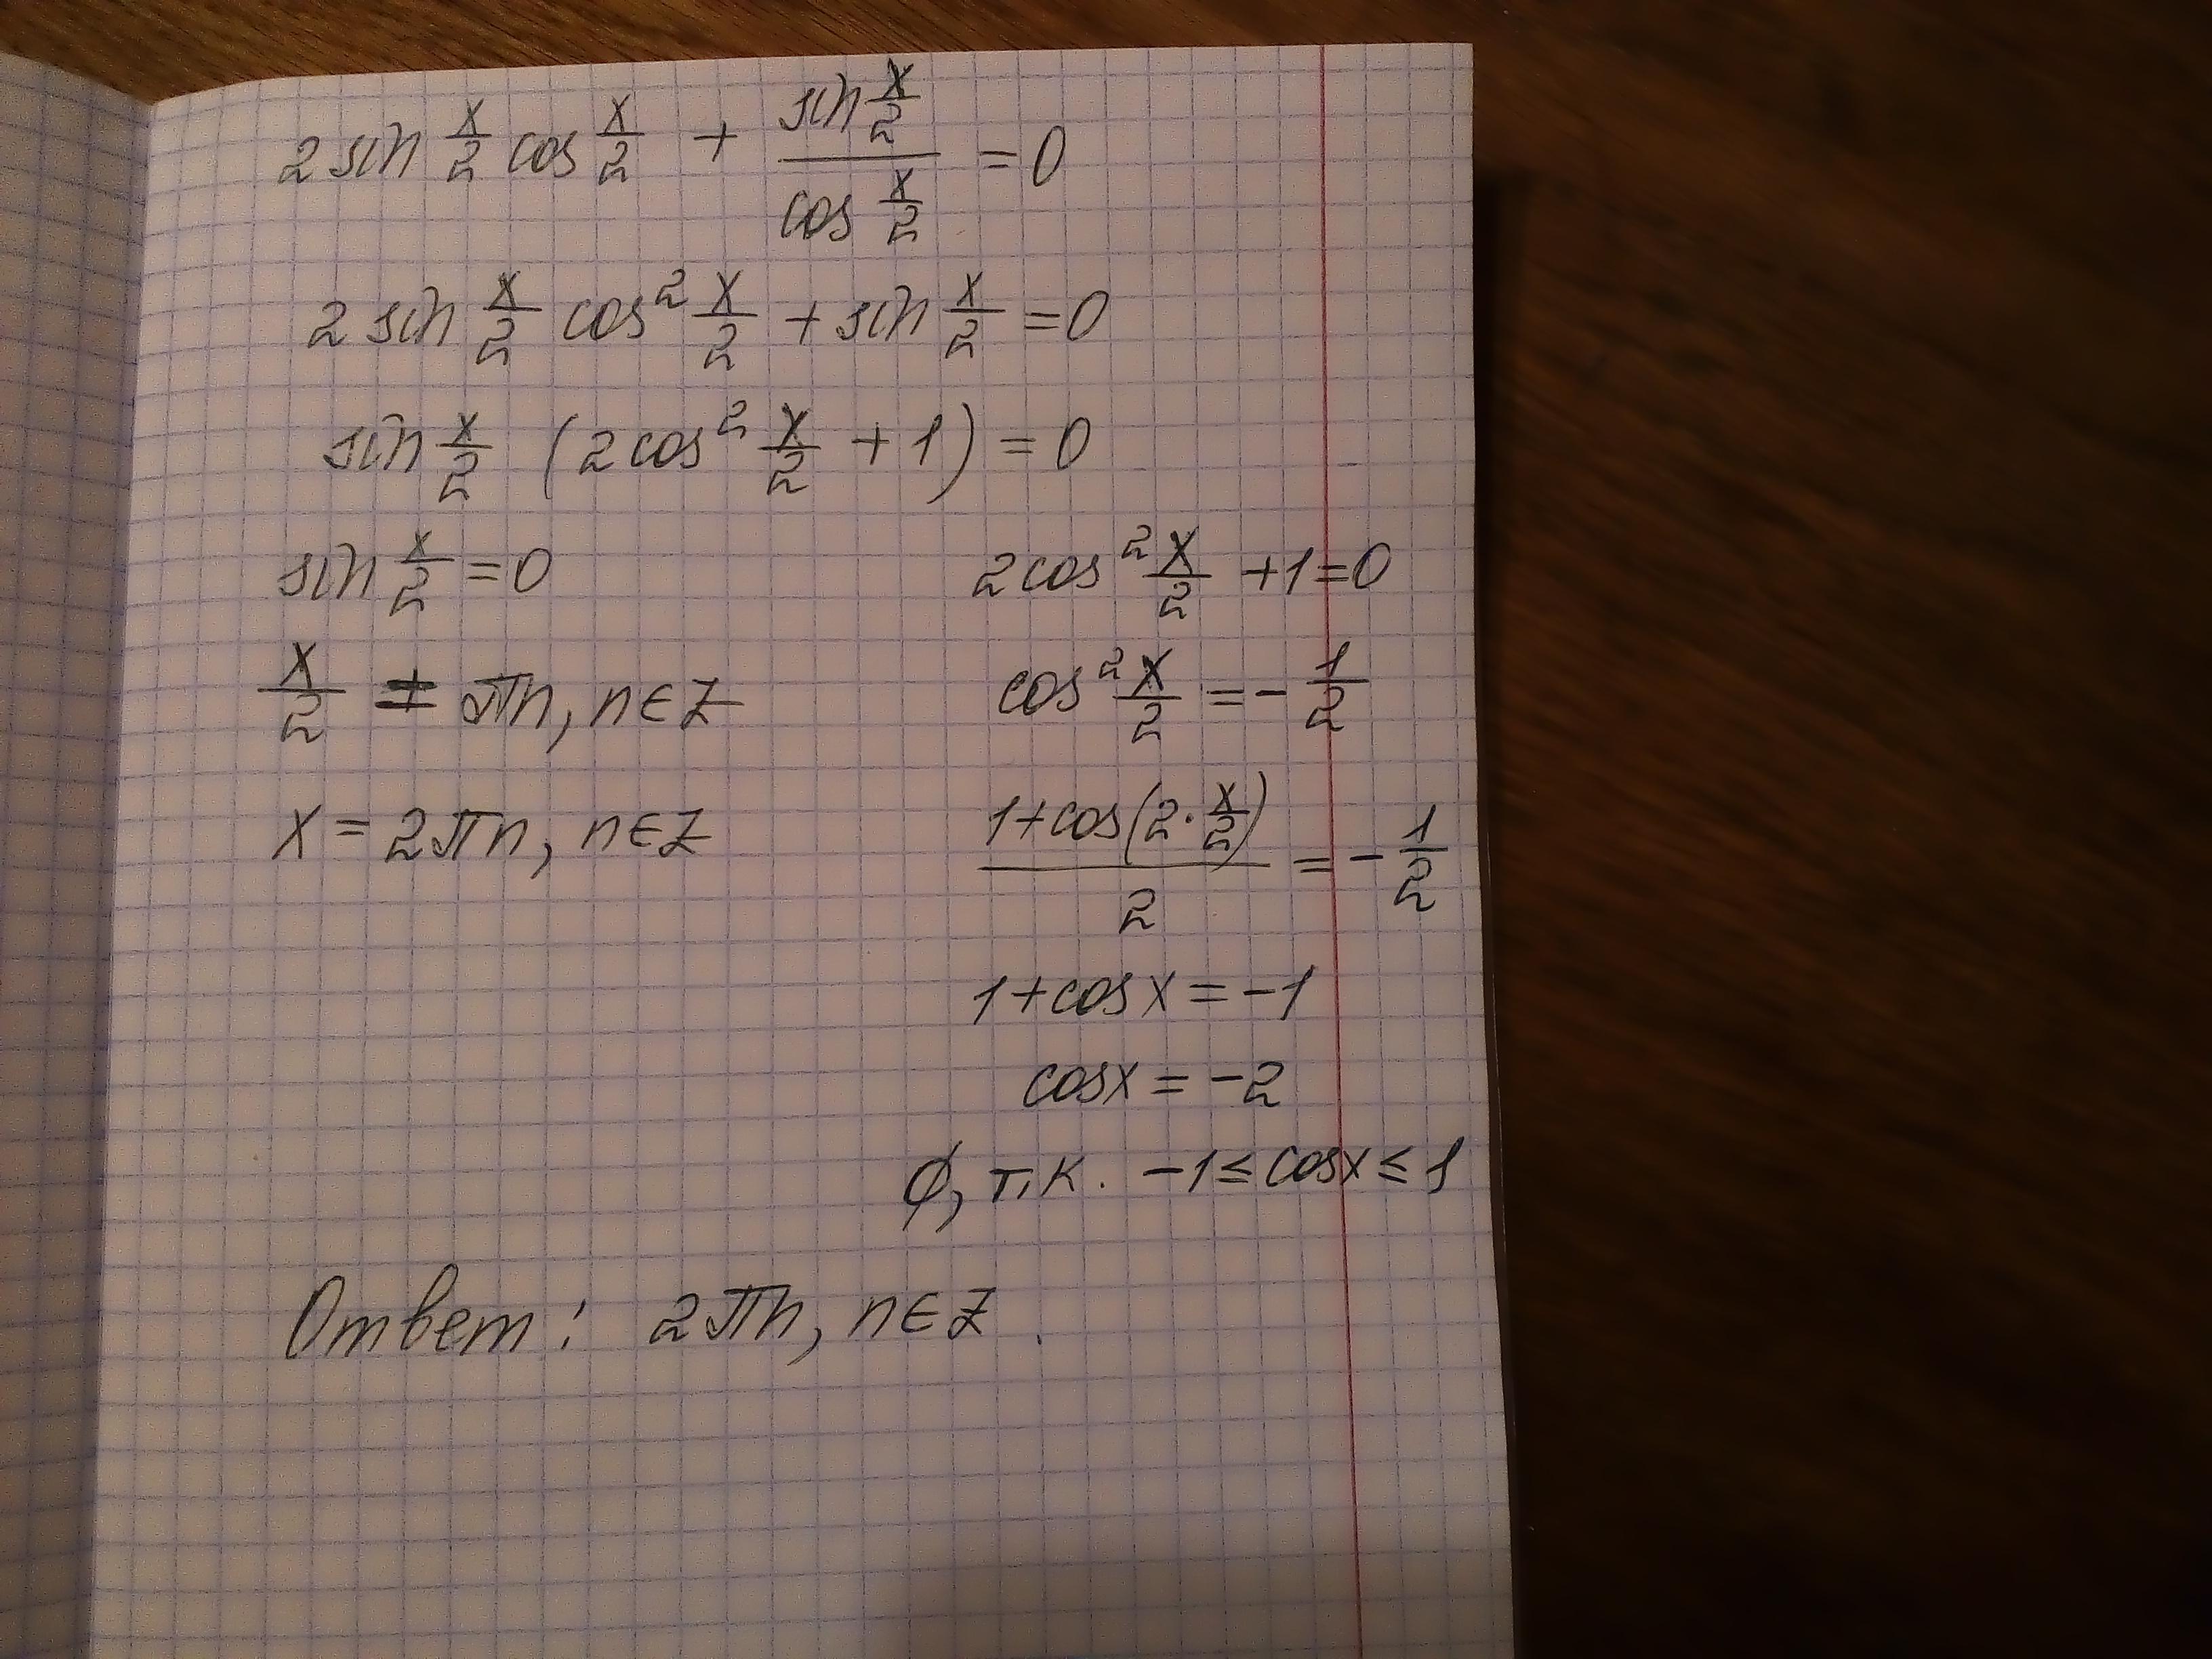 2 sin x/2 cos x/2 + sin x/2 / cos x/2 = 0
2 sin x/2 cos² x/2 + sin x/2 = 0
sin x/2 (2 cos² x/2 + 1) = 0
sin x/2 = 0
x/2 = πn, n ∈ Z
x = 2πn, n ∈ Z
2 cos² x/2 + 1 = 0
cos² x/2 = - 1/2
1 + cos(2 · x/2) / 2 = - 1/2
1 + cos x = -1
cos x = -2
∅, т.к. -1 ≤ cos x ≤ 1
Ответ: 2πn, n ∈ Z.